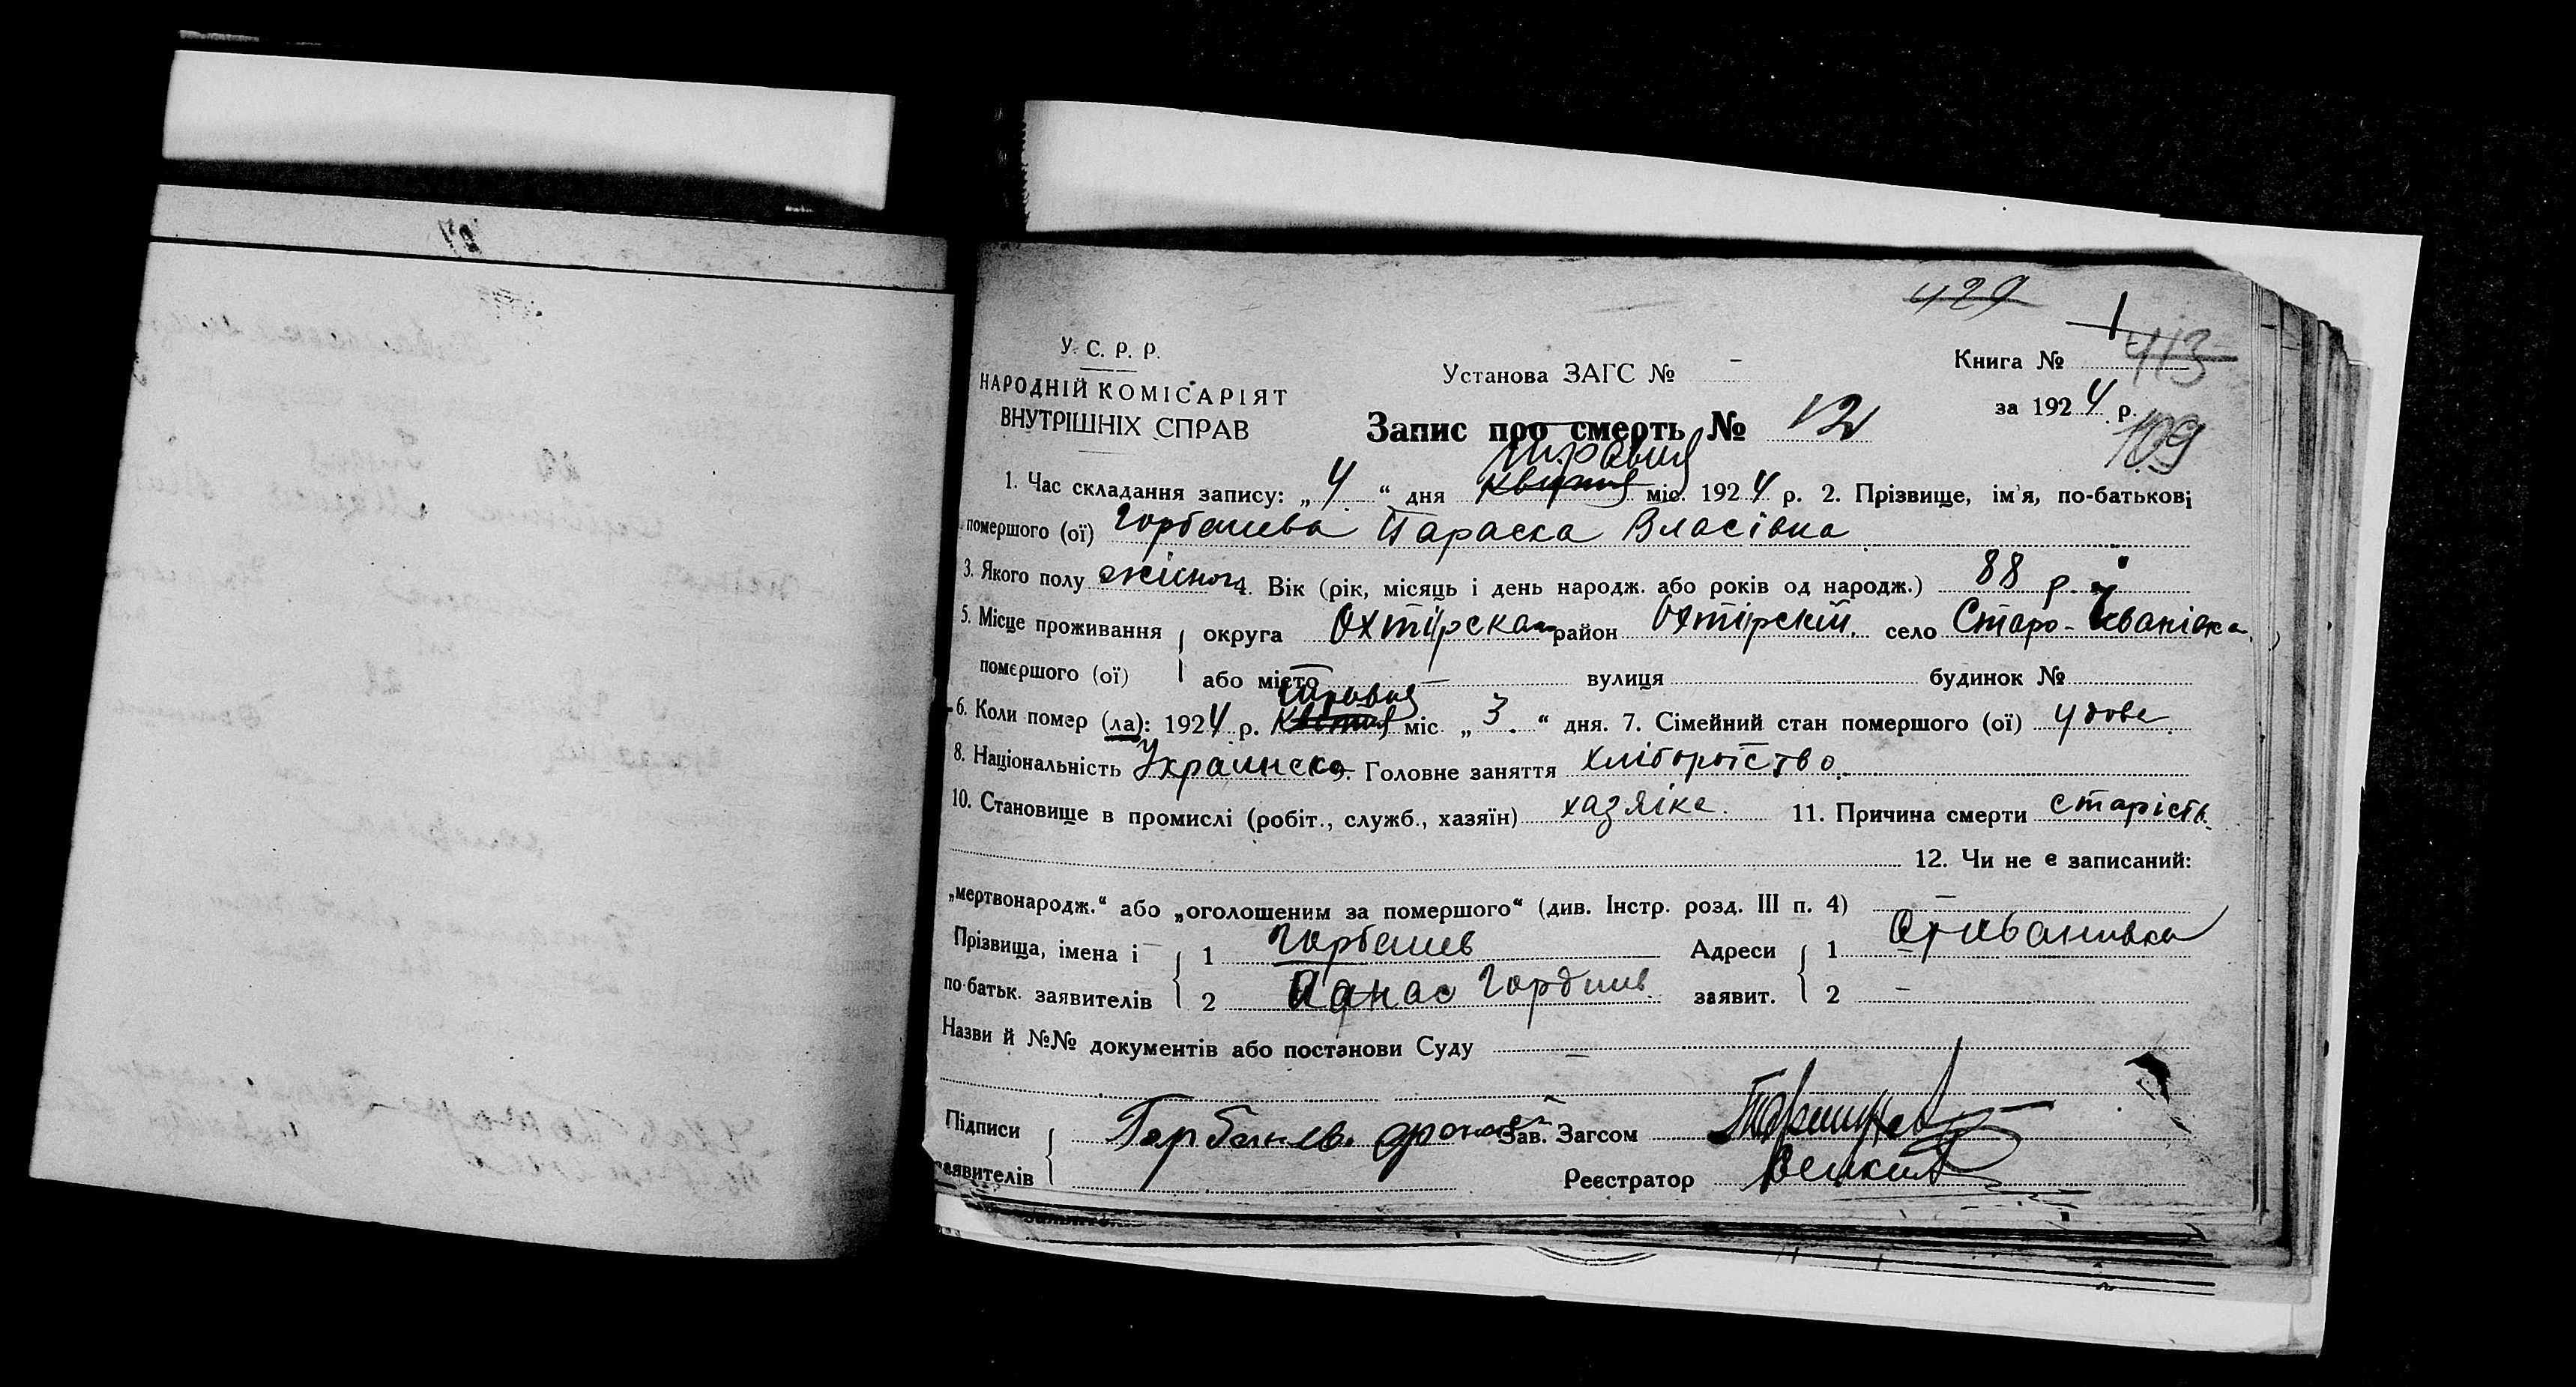 429
У. С. Р. Р.
НАРОДНІЙ КОМІСАРІЯТ
ВНУТРІШНІХ СПРАВ
Установа ЗАГС № –
Книга № 413
за 1924 р.
109
Запис про смерть № 12
травня
1. Час складання запису: „4“ дня квітня міс. 1924 р. 2. Прізвище, ім'я, по-батькові
помершого (ої) Горбанева Параска Власівна
3. Якого полу жіноч 4. Вік (рік, місяць і день народж. або років од народж.) 88 р.
5. Місце проживання округа Охтірська район Охтірський село Старо-Іванівка
помершого (ої) або місто – вулиця будинок №
травня
6. Коли помер (ла): 1924 р. квітня міс. „3“ дня. 7. Сімейний стан помершого (ої) удова
8. Національність Украинска 9. Головне заняття хліборобство
10. Становище в промислі (робіт., служб., хазяїн) хазяіка. 11. Причина смерти старість
12. Чи не є записаний:
„мертвонародж.“ або „оголошеним за помершого“ (див. Інстр. розд. III п. 4) –
Прізвища, імена і 1 Горбанев Адреси 1
по-батьк. заявителів 2 Панас Гордиев заявит. 2 –
Назви й №№ документів або постанови Суду –
Підписи Горбанев Зав. Загсом
заявителів Реєстратор